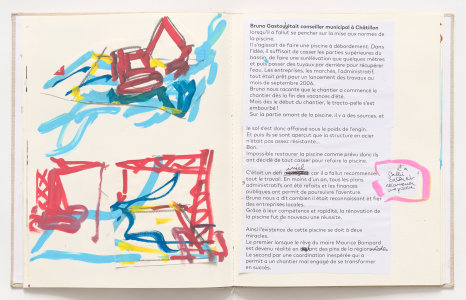 Bruno Gastou était conseiller municipal à Châtillon
lorsqu'il a fallut se pencher sur la mise aux normes de
la piscine.
Il s'agissait de faire une piscine à débordement. Dans
l'idée, il suffisait de casser les parties supérieures du
bassin, de faire une surélévation que quelques mètres
et puis passer des tuyaux par derrière pour récupérer
l'eau. Les entreprises, les marchés, l'administratif,
tout était prêt pour un lancement des travaux au
mois de septembre 2006.
Bruno nous raconte que le chantier a commencé le
chantier dès la fin des vacances d'été.
Mais dès le début du chantier, le tracto-pelle s'est
embourbé !
Sur la partie amont de la piscine, il y a des sources, et
le sol s'est donc affaissé sous le poids de l'engin.
Et puis ils se sont aperçut que la structure en acier
n'était pas assez résistante...
Bon.
Impossible restaurer la piscine comme prévu donc ils
ont décidé de tout casser pour refaire la piscine.
C'était un défi car il a fallut recommencer
tout le travail. En moins d'un an, tous les plans
administratifs ont été refaits et les finances
publiques ont permit de poursuivre l'aventure.
Bruno nous a dit combien il était reconnaissant et fier
des entreprises locales.
Grâce à leur compétence et rapidité, la rénovation de
la piscine fut de nouveau une réussite.
Ainsi l'existence de cette piscine se doit à deux
miracles.
Le premier lorsque le rêve du maire Maurice Bompard
est devenu réalité en des pins de la région
Le second par une coordination inespérée qui a
permit à un chantier mal engagé de se transformer
en succès.